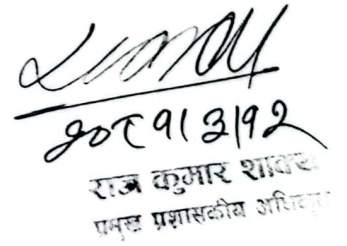 २०८१।३।१२
राज कुमार शाक्य
प्रमुख प्रशासकीय अधिकृत